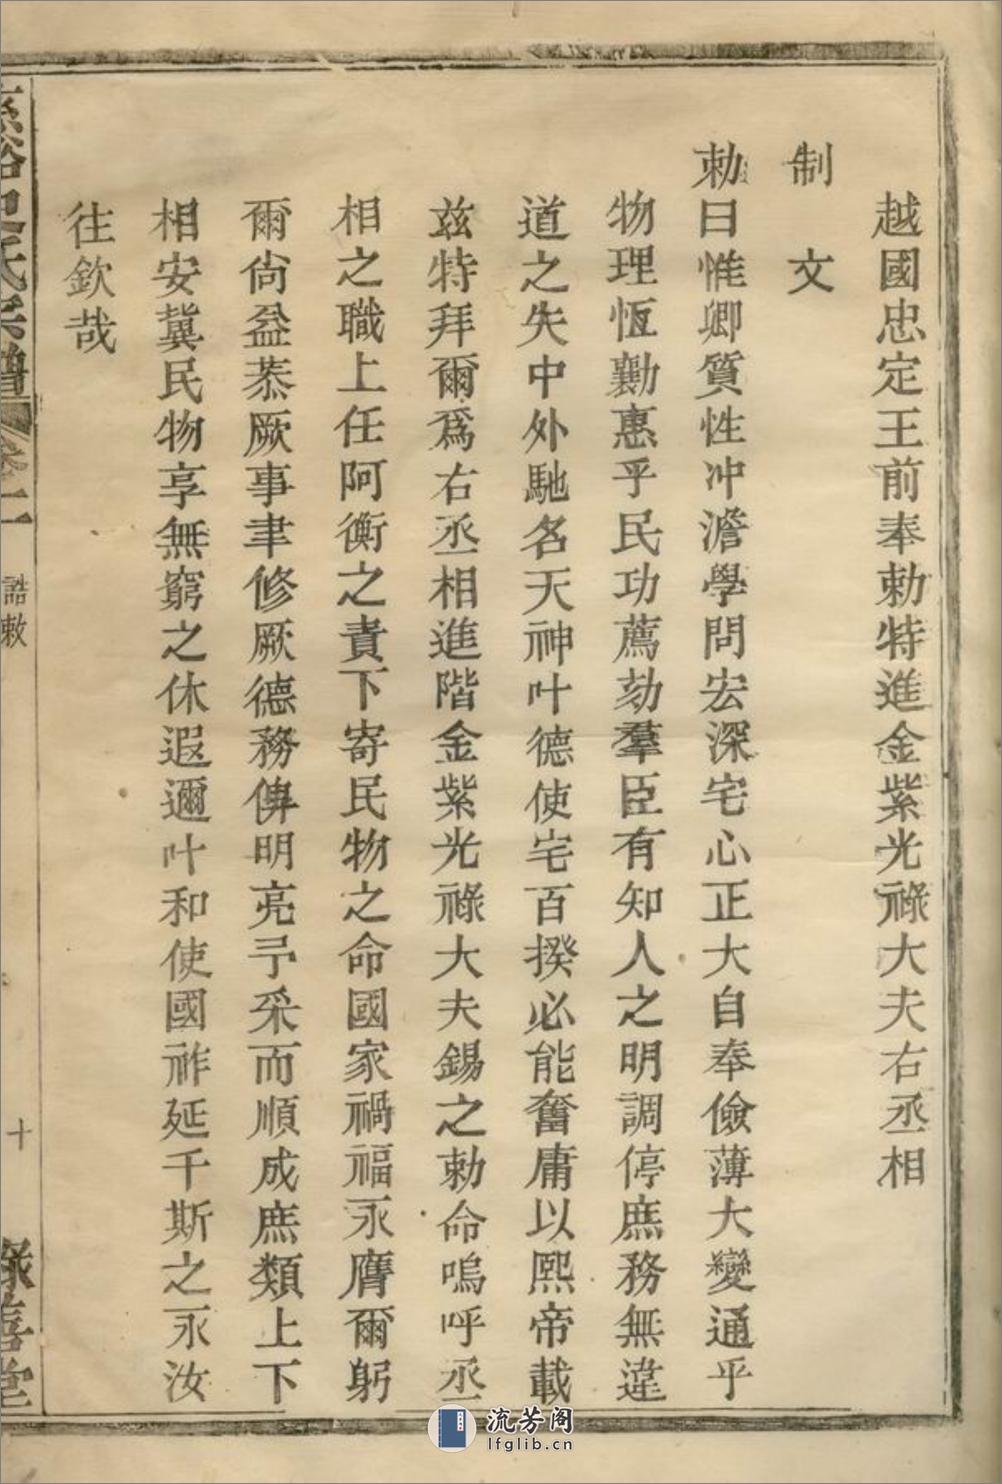 越國忠定王前奉勅特進金紫光祿大夫右丞相
制文
勅曰惟卿質性冲澹學問宏深宅心正大自奉儉薄大變通乎
物理恆勷惠乎民功薦劾羣臣有知人之明調停庶務無違
道之失中外馳名天神叶德使宅百揆必能奮庸以熙帝載
兹特拜爾爲右丞相進階金紫光祿大夫錫之勅命嗚呼丞
相之職上任阿衡之責下寄民物之命國家禍福永膺爾躬
爾尙益恭厥事聿修厥德務俾明亮予采而順成庶類上下
相安冀民物享無窮之休遐邇叶和使國祚延千斯之永汝
往欽哉
慈谿史氏宗譜
卷十一
誥敕
十